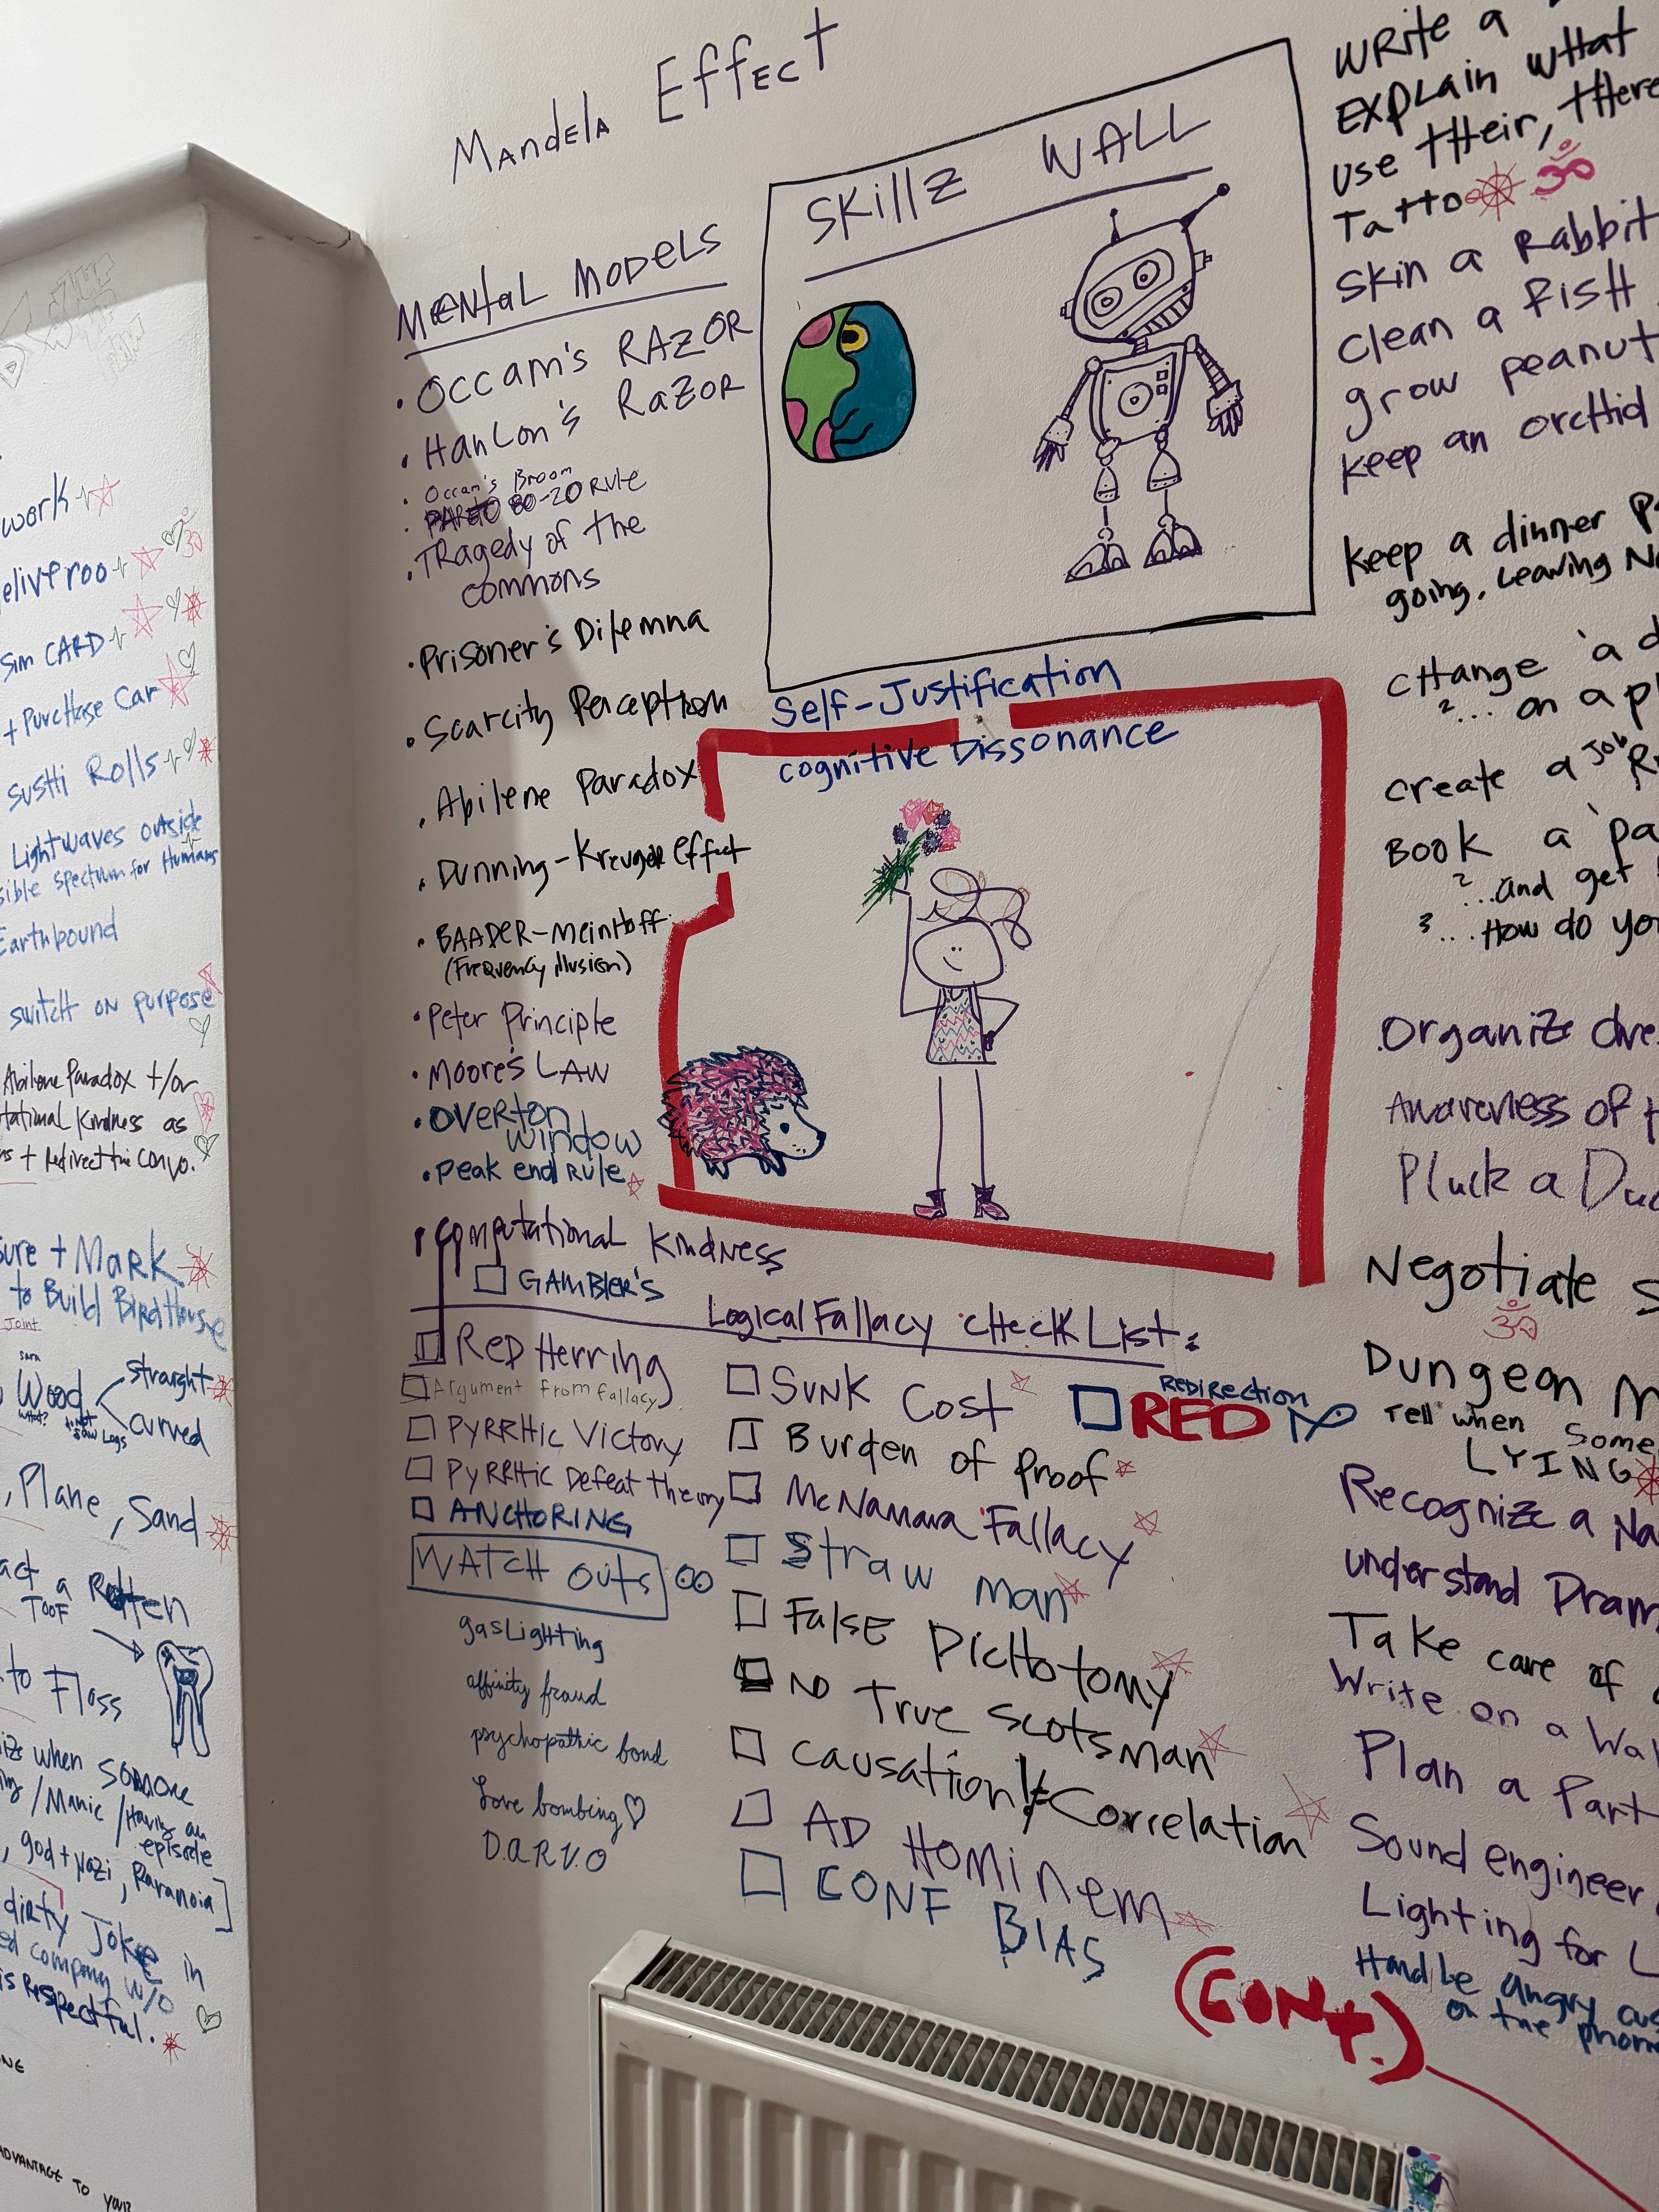 Mandela Effect
SKillz WALL
Mental Models
• Occam's RAZOR
• HanLon's RazoR
• Occam's Broom
• PARETO 80-20 RULE
• TRagedy of the
commons
• Prisoner's Dilemna
• Scarcity Perception
• Abilene Paradox
• Dunning-Kreuger effect
• BAADER-Meinhoff
(Frequency illusion)
• Peter Principle
• Moore's LAW
• OVERTON
WINDOW
• Peak end RULE
• computational Kindness
GAMBLER'S
Self-Justification
cognitive Dissonance
Logical Fallacy CHecK List:
RED Herring
Argument From fallacy
PYRRHIC VICTORY
PYRRHIC Defeat theory
ANCHORING
WATCH outs
gasLighting
affinity fraud
psychopathic bond
Love bombing
D.A.R.V.O
SUNK Cost
Burden of Proof
McNamara Fallacy
Straw man
False Dichotomy
NO True Scotsman
causation ≠ Correlation
AD Hominem
CONF BIAS
REDIRECTION
RED
(CONT.)
WRite a
EXPLain what
use their, there
Tattoo
skin a Rabbit
clean a fish
grow peanut
keep an orchid
Keep a dinner
going, Leaving
CHange a
2... on a
create a JOB
BOOK a
2 ...and get
3 ... How do
Organize
Awareness of
Pluck a
Negotiate
Dungeon
Tell when
LYING
Recognize a
understand
Take care of
Write on a
Plan a
Sound engineer
Lighting for
Handle angry
on the phone
work
Sim CARD
+ Purchase Car
SusHi Rolls
Lightwaves outside
spectrum for Humans
Earthbound
switch on purpose
Abilene Paradox +/or
Kindness as
+ Redirect the convo.
+ Mark
to Build BirdHouse
Joint
Wood
what?
straight
curved
, Plane, Sand
a Rotten
TOOF
to Floss
when someone
/Manic/Having an
episode
, god + Nazi, Paranoia]
dirty Joke in
company w/o
is Respectful.
ADVANTAGE TO YOUR